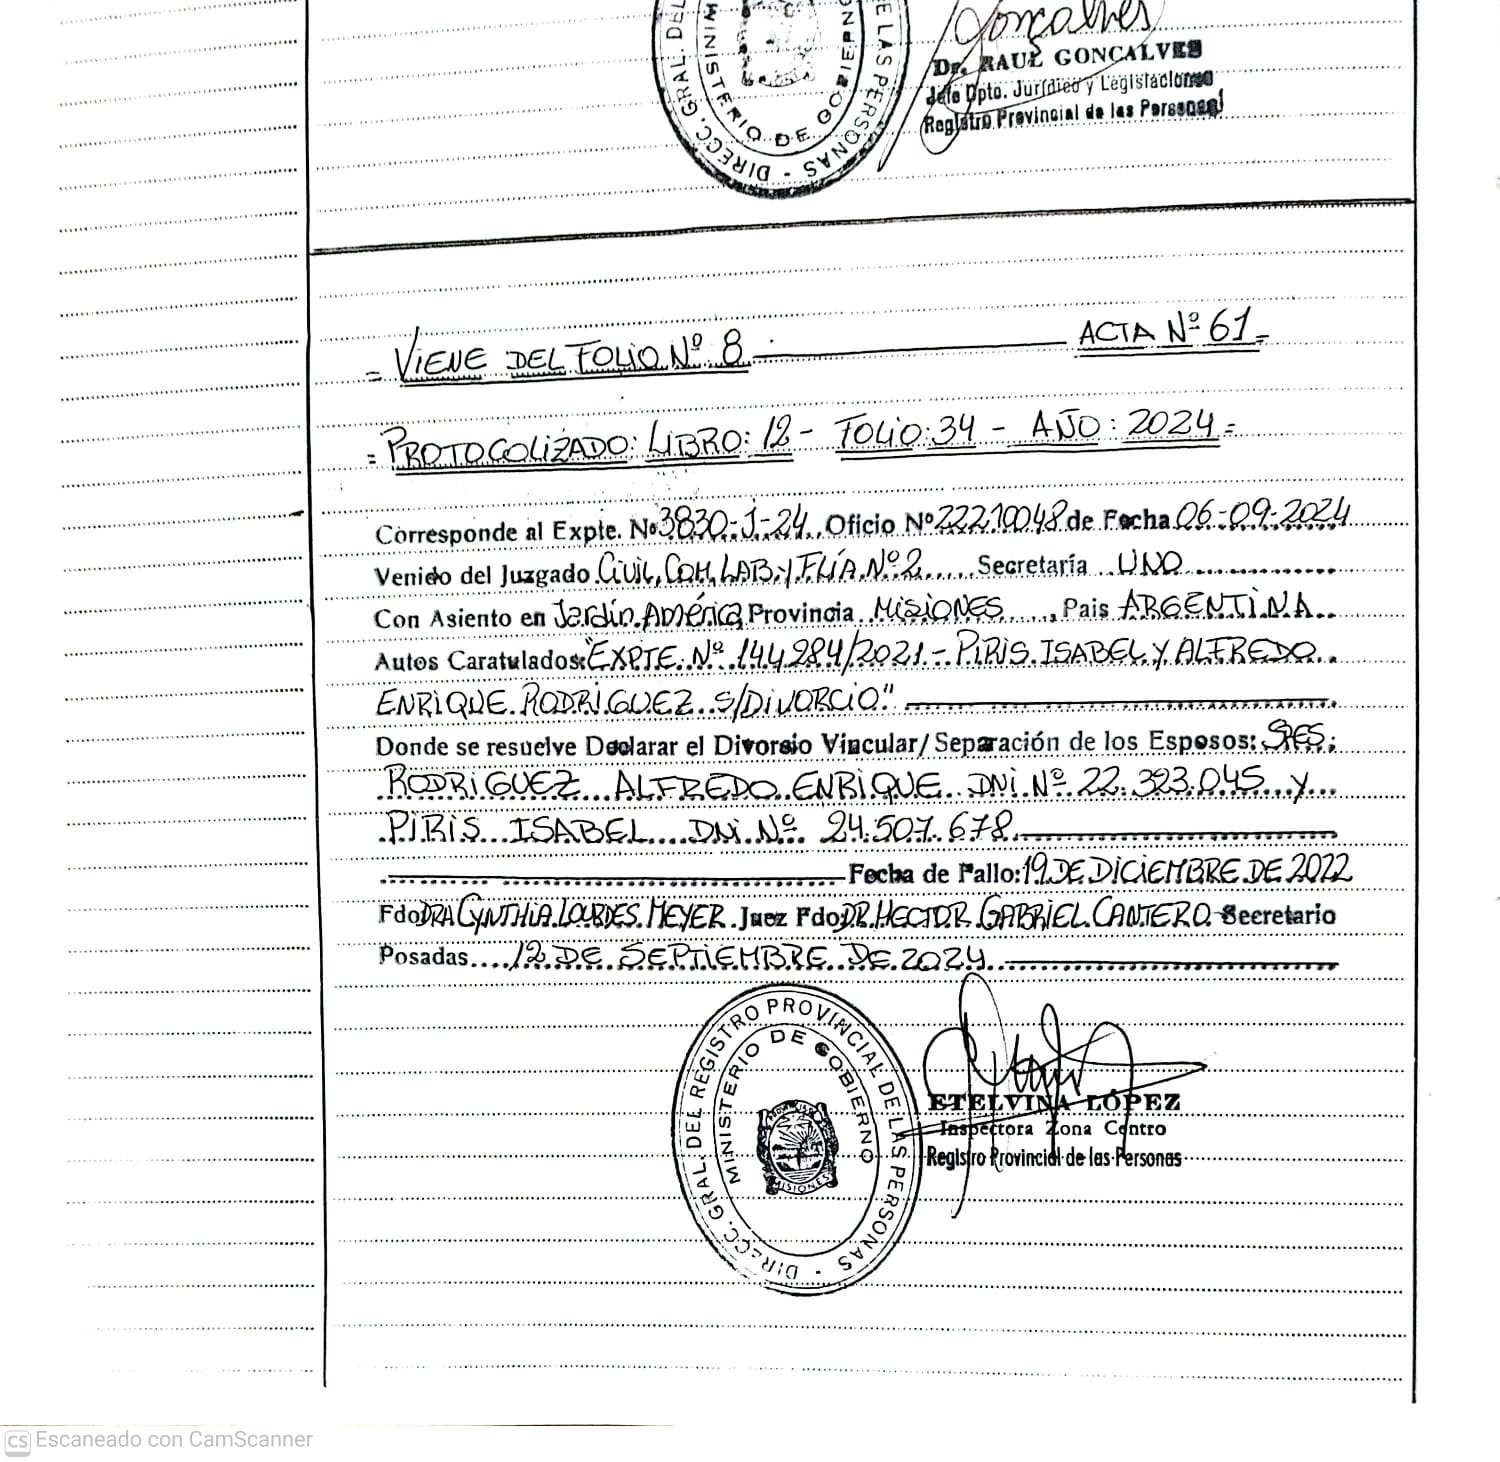 Goncalves
Dr. RAUL GONCALVES
Jefe Dpto. Jurídico y Legislaciones
Registro Provincial de las Personas
DIRECC. GRAL. DEL
E LAS PERSONAS -
MINISTERIO DE GOBIERNO
= VIENE DEL FOLIO Nº 8 ACTA Nº 61=
= PROTOCOLIZADO: LIBRO: 12 - FOLIO: 34 - AÑO: 2024 =
Corresponde al Expte. Nº 3830-J-24 Oficio Nº 22210048 de Fecha 06-09-2024
Venido del Juzgado Civil, COM, LAB. y FLÍA. Nº 2 Secretaría UNO
Con Asiento en Jardín América Provincia MISIONES, Pais ARGENTINA
Autos Caratulados: "EXPTE. Nº 144284/2021 - PIRIS ISABEL Y ALFREDO
ENRIQUE RODRIGUEZ S/DIVORCIO."
Donde se resuelve Declarar el Divorsio Vincular/Separación de los Esposos: SRES:
RODRIGUEZ ALFREDO ENRIQUE DNI Nº 22.323.045 y
PIRIS ISABEL DNI Nº 24.507.678
Fecha de Fallo: 19 DE DICIEMBRE DE 2022
Fdo DRA CYNTHIA LOURDES MEYER Juez Fdo DR. HECTOR GABRIEL CANTERO Secretario
Posadas 12 DE SEPTIEMBRE DE 2024
DIRECC. GRAL. DEL REGISTRO PROVINCIAL DE LAS PERSONAS -
MINISTERIO DE GOBIERNO
MISIONES
ETELVINA LÓPEZ
Inspectora Zona Centro
Registro Provincial de las Personas
CS Escaneado con CamScanner